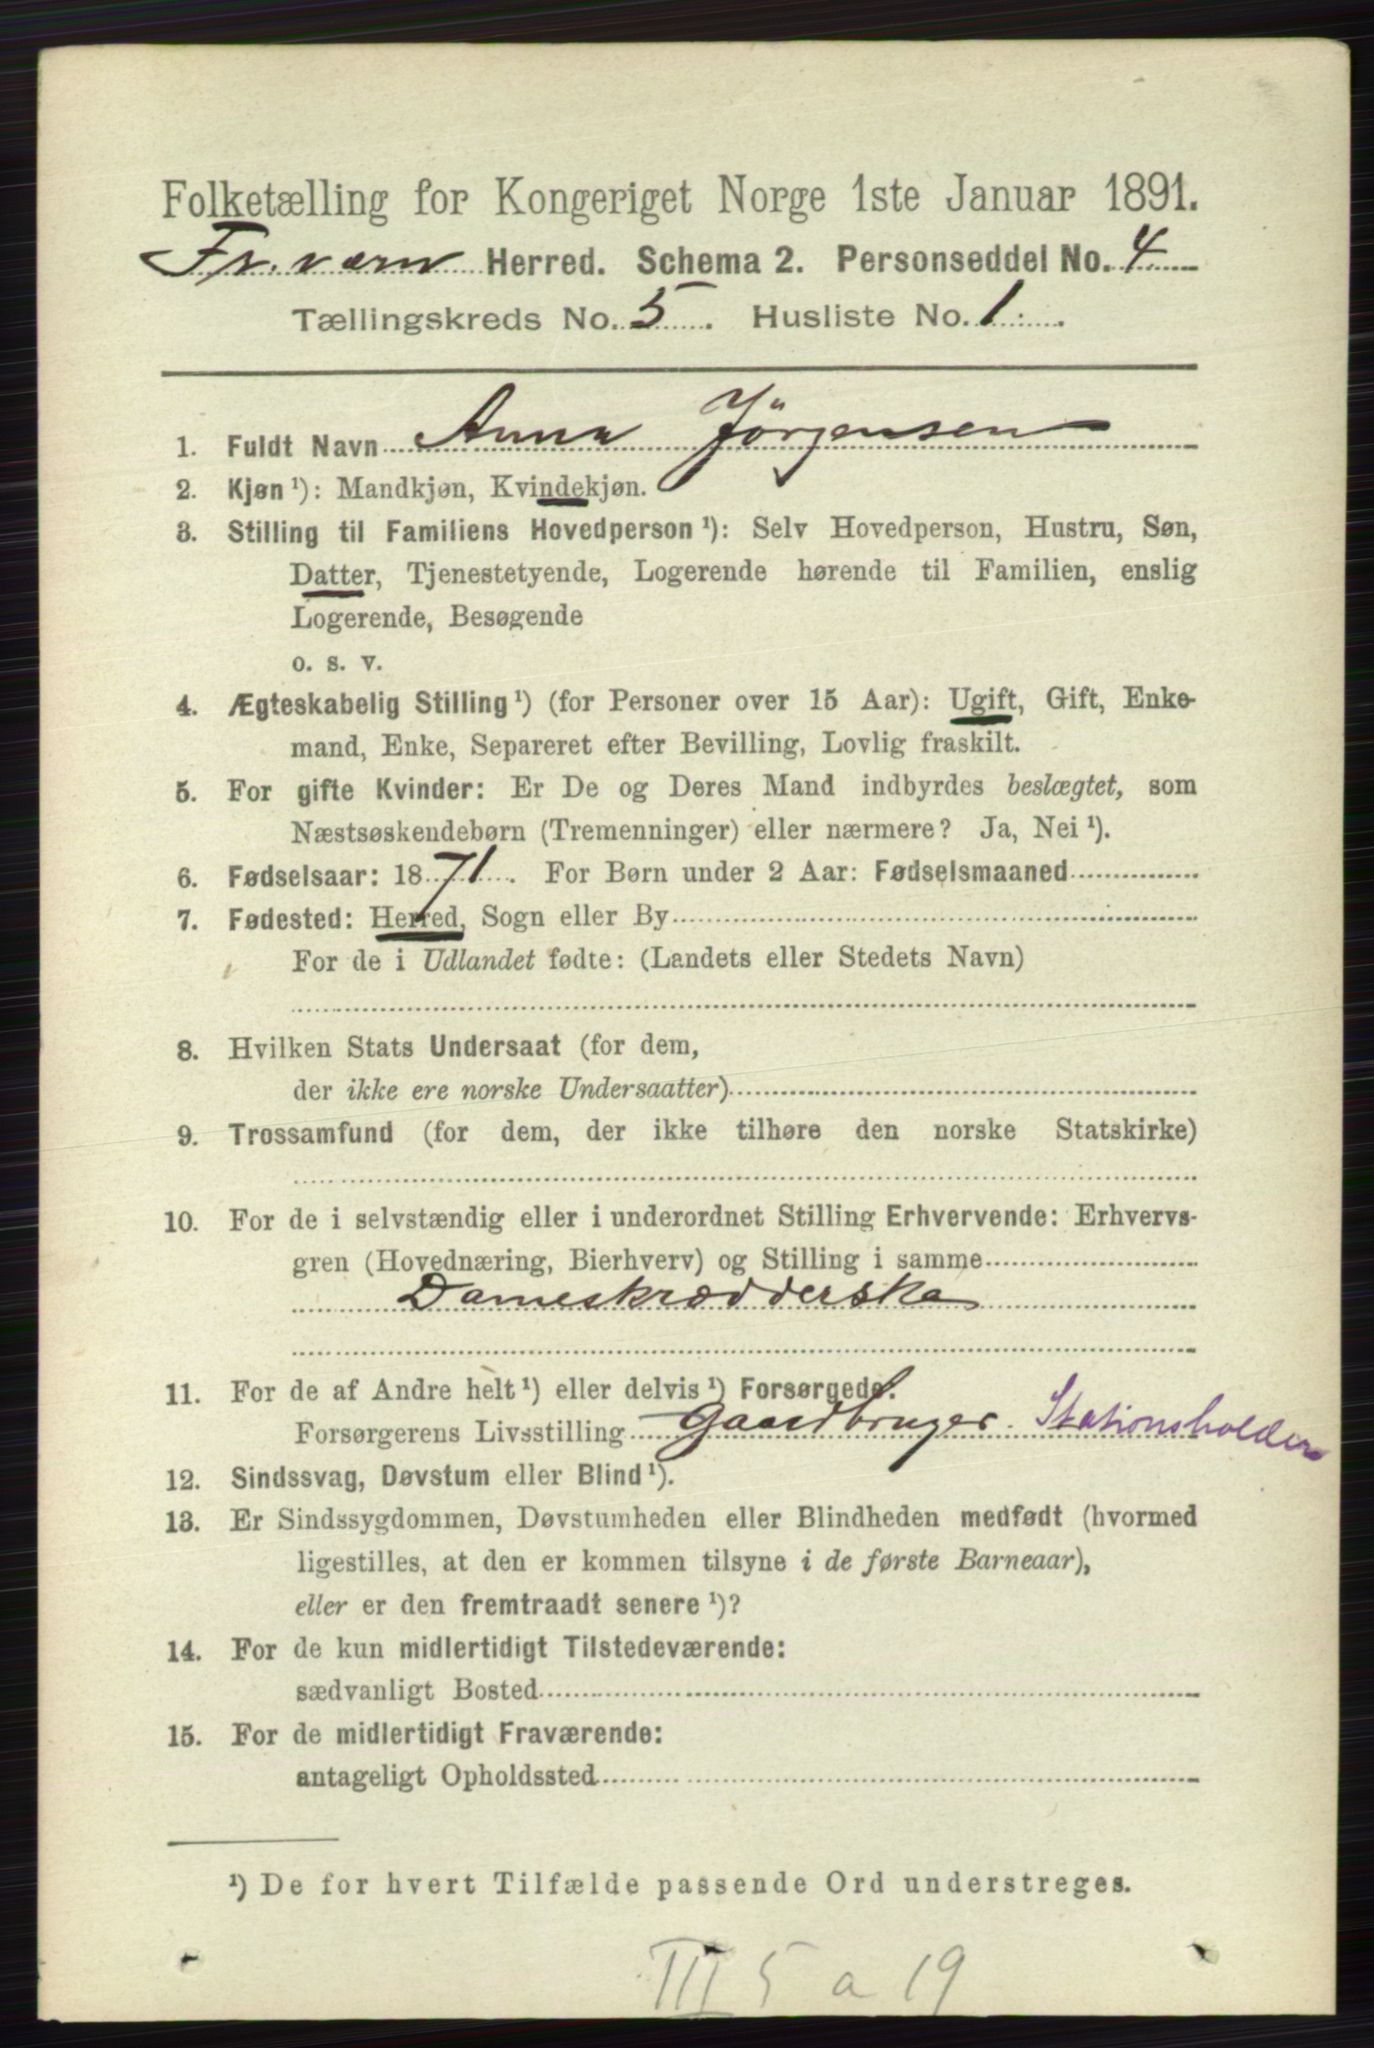 Folketælling for Kongeriget Norge 1ste Januar 1891.
Fr.værn Herred. Schema 2. Personseddel No. 4
Tællingskreds No. 5. Husliste No. 1.
1. Fuldt Navn Anna Jörgensen
2. Kjøn ¹): Mandkjøn, Kvindekjøn.
3. Stilling til Familiens Hovedperson ¹): Selv Hovedperson, Hustru, Søn,
Datter, Tjenestetyende, Logerende hørende til Familien, enslig
Logerende, Besøgende
o. s. v.
4. Ægteskabelig Stilling ¹) (for Personer over 15 Aar): Ugift, Gift, Enke-
mand, Enke, Separeret efter Bevilling, Lovlig fraskilt.
5. For gifte Kvinder: Er De og Deres Mand indbyrdes beslægtet, som
Næstsøskendebørn (Tremenninger) eller nærmere? Ja, Nei ¹).
6. Fødselsaar: 1871. For Børn under 2 Aar: Fødselsmaaned
7. Fødested: Herred, Sogn eller By
For de i Udlandet fødte: (Landets eller Stedets Navn)
8. Hvilken Stats Undersaat (for dem,
der ikke ere norske Undersaatter)
9. Trossamfund (for dem, der ikke tilhøre den norske Statskirke)
10. For de i selvstændig eller i underordnet Stilling Erhvervende: Erhvervs-
gren (Hovednæring, Bierhverv) og Stilling i samme
Dameskrædderske
11. For de af Andre helt ¹) eller delvis ¹) Forsørgede.
Forsørgerens Livsstilling Gaardbruger. Stationsholder
12. Sindssvag, Døvstum eller Blind ¹).
13. Er Sindssygdommen, Døvstumheden eller Blindheden medfødt (hvormed
ligestilles, at den er kommen tilsyne i de første Barneaar),
eller er den fremtraadt senere ¹)?
14. For de kun midlertidigt Tilstedeværende:
sædvanligt Bosted
15. For de midlertidigt Fraværende:
antageligt Opholdssted
¹) De for hvert Tilfælde passende Ord understreges.
III 5 a 19